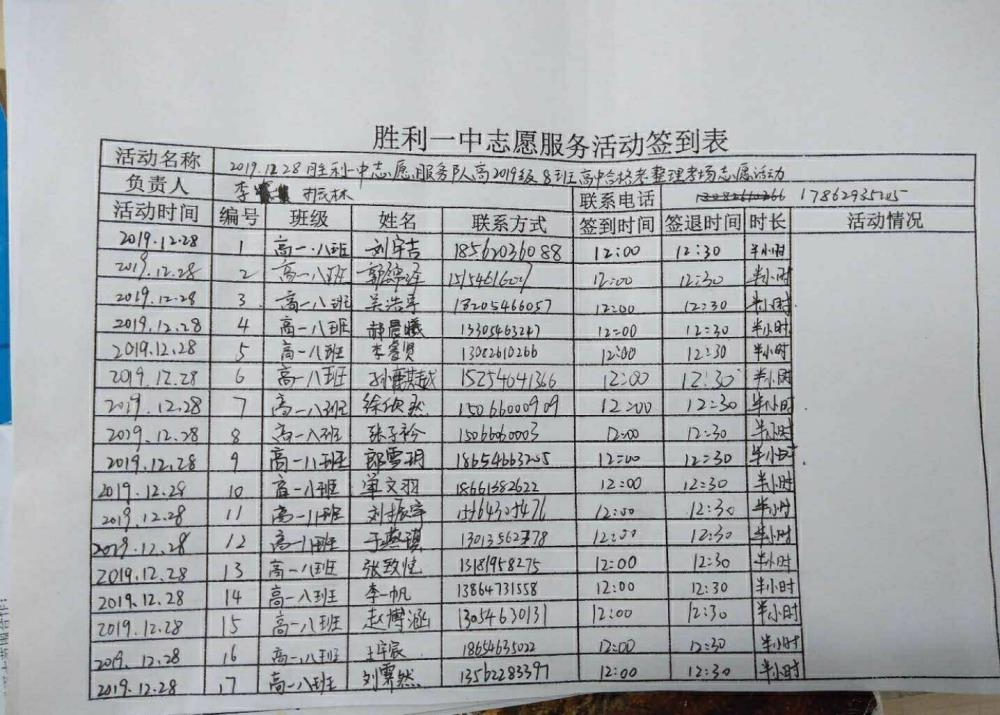 胜利一中志愿服务活动签到表
活动名称 2019.12.28胜利一中志愿服务队高2019级8班高中合格考整理考场志愿活动
负责人 李 林 联系电话 17862935205
活动时间 编号 班级 姓名 联系方式 签到时间 签退时间 时长 活动情况
2019.12.28 1 高一.八班 刘宇吉 18562036088 12:00 12:30 半小时
2019.12.28 2 高一八班 12:00 12:30 半小时
2019.12.28 3 高一八班 吴浩 18205466057 12:00 12:30 半小时
2019.12.28 4 高一八班 郝晨曦 13305463247 12:00 12:30 半小时
2019.12.28 5 高一八班 李睿贤 13082610266 12:00 12:30 半小时
2019.12.28 6 高一八班 15254641366 12:00 12:30 半小时
2019.12.28 7 高一八班 徐欣然 15066000909 12:00 12:30 半小时
2019.12.28 8 高一八班 张子衿 12:00 12:30 半小时
2019.12.28 9 高一八班 郭雪玥 18654663205 12:00 12:30 半小时
2019.12.28 10 高一八班 单文羽 18661382622 12:00 12:30 半小时
2019.12.28 11 高一八班 刘振宇 12:00 12:30 半小时
2019.12.28 12 高一八班 于燕琪 12:00 12:30 半小时
2019.12.28 13 高一八班 张致恺 13181958275 12:00 12:30 半小时
2019.12.28 14 高一八班 李一帆 13864731558 12:00 12:30 半小时
2019.12.28 15 高一八班 赵博涵 13054630131 12:00 12:30 半小时
2019.12.28 16 高一八班 王宇宸 18654635022 12:00 12:30 半小时
2019.12.28 17 高一八班 刘霁然 13562283397 12:00 12:30 半小时